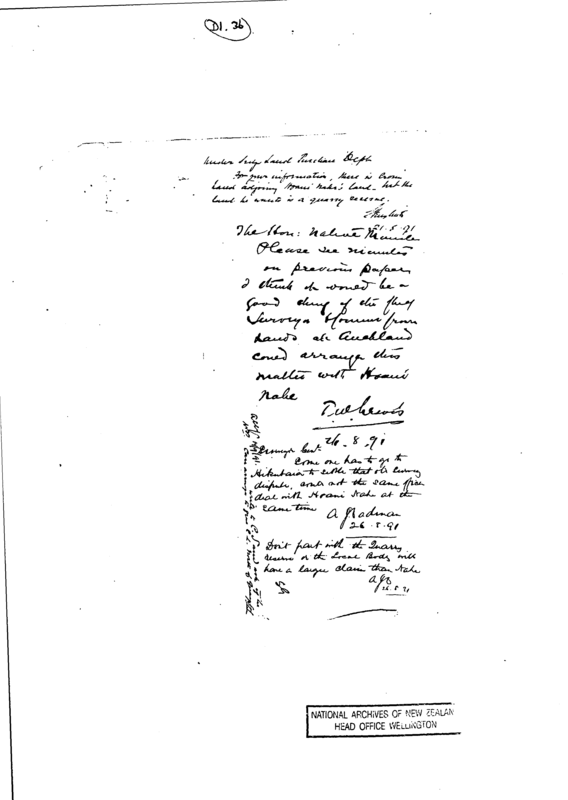 D1. 36
Under Secy Land Purchase Dept
For your information, there is Crown
Land adjoining Hoani Nahe's land but the
land he wants is a quarry reserve.
21.5.91
The Hon: Native Minister
Please see minutes
on previous papers
I think it would be a
good thing if the
Survey
Lands at Auckland
could arrange this
matter with Hoani
Nahe
T.W. Lewis
26.8.91
Some one has to go to
to settle that old survey
dispute, could not the same officer
deal with Hoani Nahe at the
same time
A J Cadman
26.8.91
Don't part with the Quarry
reserve or the Local Body will
have a larger claim than Nahe
AJC
26.8.91
NATIONAL ARCHIVES OF NEW ZEALAN
HEAD OFFICE WELLINGTON